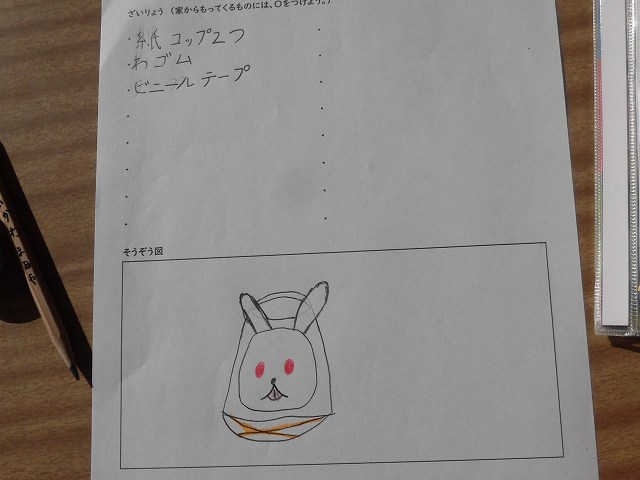 ざいりょう（家からもってくるものには、○をつけよう。）
・紙コップ2つ
・わゴム
・ビニールテープ
そうぞう図